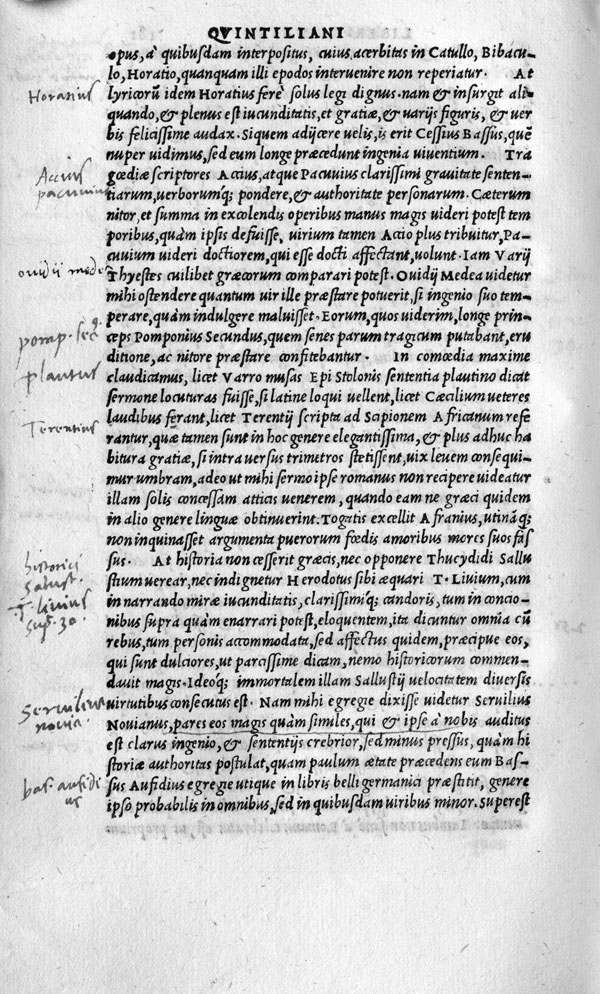 QVINTILIANI
opus, à quibusdam interpositus, cuius, acerbitas in Catullo, Bibacu-
lo, Horatio, quanquam illi epodos interuenire non reperiatur. At
Horatius
lyricorũ idem Horatius ferè solus legi dignus. nam & insurgit ali-
quando, & plenus est iucunditatis, et gratiæ, & varijs figuris, & ver
bis felicissime audax. Siquem adijcere uelis, is erit Cessius Bassus, quẽ
nuper vidimus, sed eum longe præcedunt ingenia viuentium. Tra
Accius
gœdiæ scriptores Accius, atque Pacuuius clarissimi grauitate senten-
pacuuius
tiarum, uerborumq; pondere, & authoritate personarum. Cæterum
nitor, et summa in excolendis operibus manus magis uideri potest tem
poribus, quàm ipsis defuisse, uirium tamen Accio plus tribuitur, Pa-
cuuium uideri doctiorem, qui esse docti affectant, uolunt. Iam Varij
ouidij mede
Thyestes cuilibet græcorum comparari potest. Ouidij Medea uidetur
mihi ostendere quantum uir ille præstare potuerit, si ingenio suo tem-
perare, quàm indulgere maluisset. Eorum, quos uiderim, longe prin-
pomp. sec
ceps Pomponius Secundus, quem senes parum tragicum putabant, eru
ditione, ac nitore præstare confitebantur. In comœdia maxime
plautus
claudicamus, licet Varro musas Epi Stolonis sententia plautino dicat
sermone locuturas fuisse, si latine loqui uellent, licet Cæcilium ueteres
laudibus ferant, licet Terentij scripta ad Scipionem Africanum refe
Terentius
rantur, quæ tamen sunt in hoc genere elegantissima, & plus adhuc ha
bitura gratiæ, si intra uersus trimetros stetissent, uix leuem consequi-
mur umbram, adeo ut mihi sermo ipse romanus non recipere uideatur
illam solis concessam atticis uenerem, quando eam ne græci quidem
in alio genere linguæ obtinuerint. Togatis excellit Afranius, utinãq;
non inquinasset argumenta puerorum fœdis amoribus mores suos fas
historici
sus. At historia non cesserit græcis, nec opponere Thucydidi Sallu
salust.
stium uerear, nec indignetur Herodotus sibi æquari T. Liuium, cum
T. liuius
in narrando miræ iucunditatis, clarissimiq; candoris, tum in concio-
nibus supra quàm enarrari potest, eloquentem, ita dicuntur omnia cũ
rebus, tum personis accommodata, sed affectus quidem, præcipue eos,
qui sunt dulciores, ut parcissime dicam, nemo historicorum commen-
dauit magis. Ideoq; immortalem illam Sallustij uelocitatem diuersis
uirtutibus consecutus est. Nam mihi egregie dixisse uidetur Seruilius
Seruilius
Nouianus, pares eos magis quàm similes, qui & ipse à nobis auditus
est clarus ingenio, & sententijs crebrior, sed minus pressus, quàm hi
storiæ authoritas postulat, quam paulum ætate præcedens eum Bas-
bas. aufidi
us
sus Aufidius egregie utique in libris belli germanici præstitit, genere
ipso probabilis in omnibus, sed in quibusdam uiribus minor. Superest